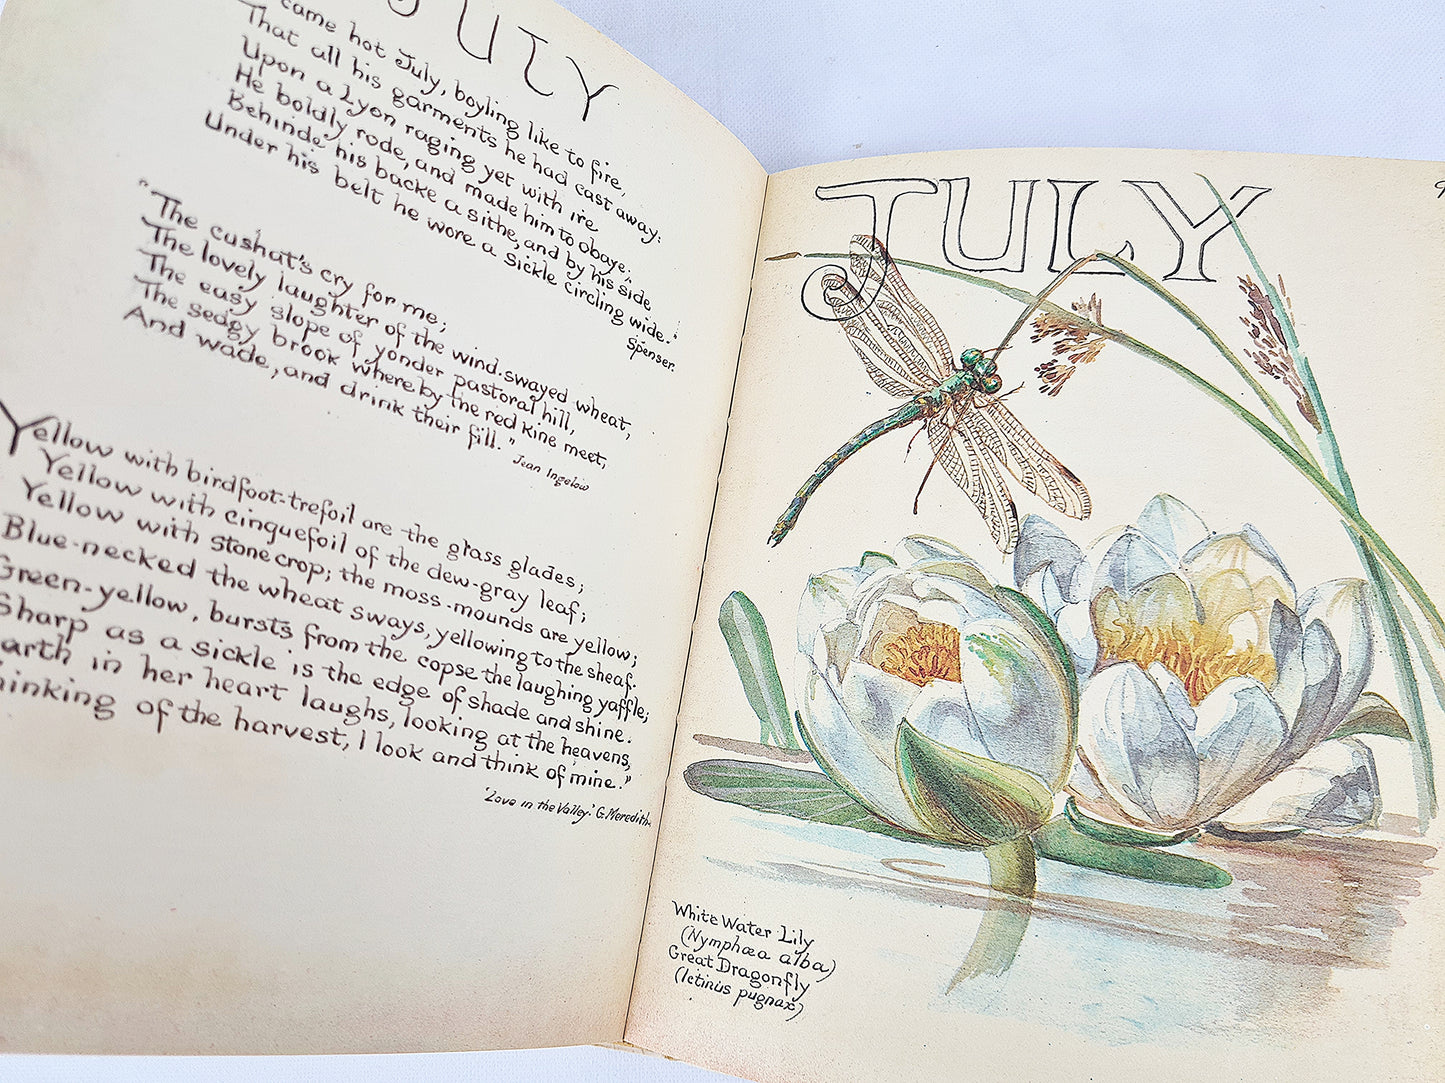 JULY
came hot July, boyling like to fire,
That all his garments he had cast away:
Upon a Lyon raging yet with ire
He boldly rode, and made him to obaye:
Behinde his backe a sithe, and by his side
Under his belt he wore a sickle circling wide."
Spenser.
"The cushat's cry for me;
The lovely laughter of the wind-swayed wheat,
The easy slope of yonder pastoral hill,
The sedgy brook whereby the red kine meet,
And wade, and drink their fill."
Jean Ingelow
Yellow with birdfoot-trefoil are the grass glades;
Yellow with cinquefoil of the dew-gray leaf;
Yellow with stonecrop; the moss-mounds are yellow;
Blue-necked the wheat sways, yellowing to the sheaf.
Green-yellow, bursts from the copse the laughing yaffle;
Sharp as a sickle is the edge of shade and shine.
arth in her heart laughs, looking at the heavens,
hinking of the harvest, I look and think of mine."
'Love in the Valley.' G. Meredith.
JULY
9
White Water Lily
(Nymphæa alba)
Great Dragonfly
(Ictinus pugnax)